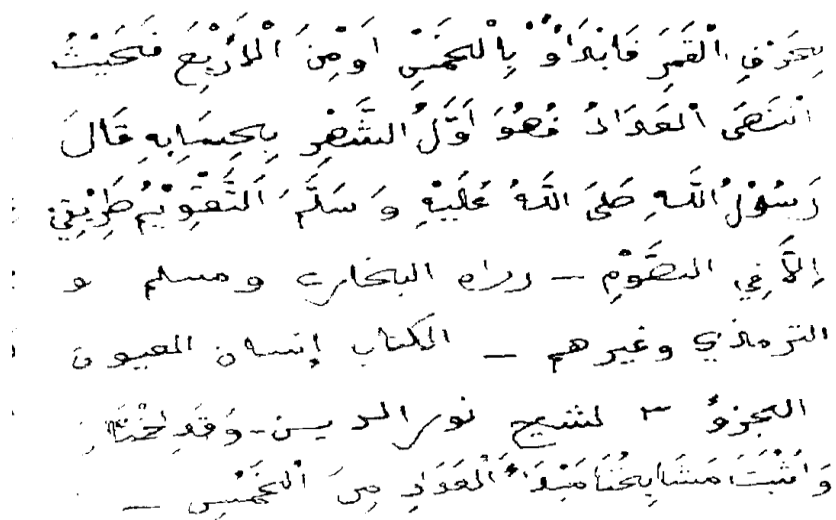 بِحَرْفِ الْقَمَرَ فَابْدَاوُ بِالْخَمِيْسِ اَوْمِنَ الْاَرْبِعَ فَحَيْثُ
انْتَهَى الْعَدَادُ فَهُوَ اَوَّلُ الشَّهْرِ بِحِسَابِهِ قَالَ
رَسُوْلُ اللّٰهِ صَلَى اللّٰهُ عَلَيْهِ وَ سَلَّمَ اَلتَّقْوِيْمُ طَرِيْقِيْ
اِلَّا فِي الصَّوْمِ – رواه البخاري ومسلم و
الترمذي وغيرهم – الكتاب إنسان العيون
الجزؤ ٣ لشيخ نور الدين - وَقَدِ
وَاَثْبَتَ مَشَايِخُنَا مَبْدَأَ الْعَدَادِ مِنَ الْخَمْسِ –